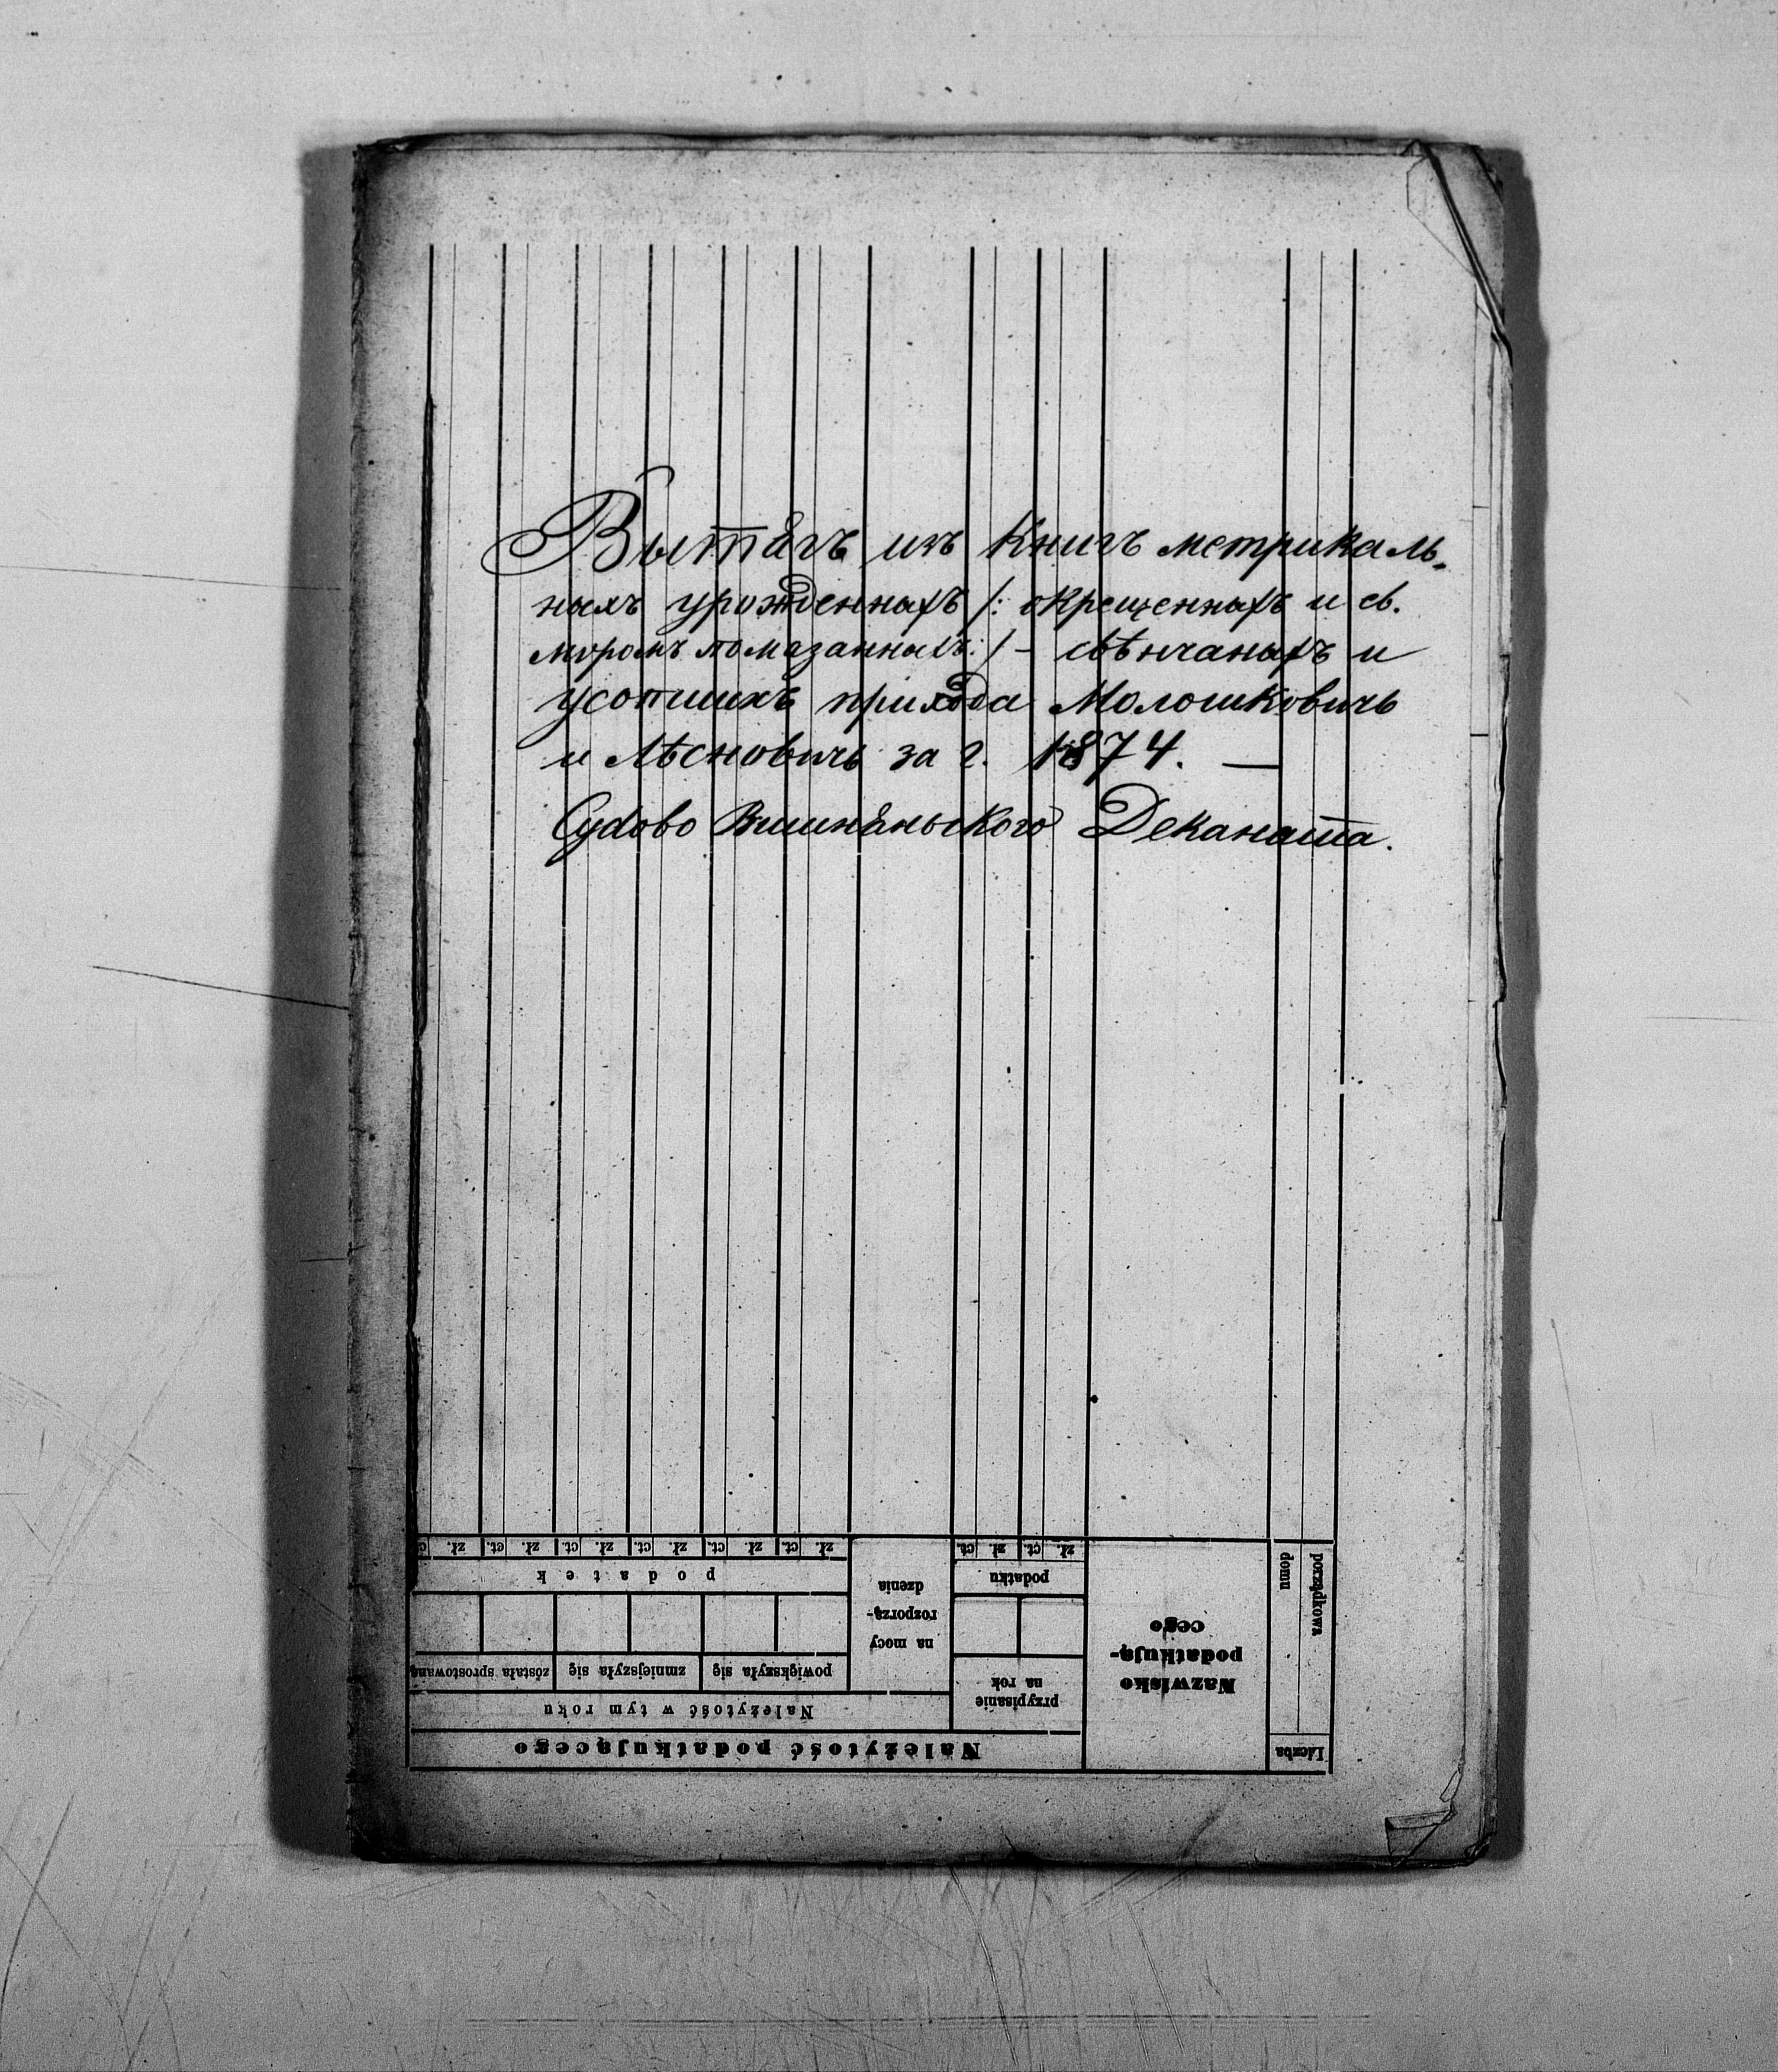 Вытягъ изъ Книгъ метрикаль-
ныхъ урожденныхъ /: окрещенныхъ и св.
мѵромъ помазанныхъ :/ - свѣнчаныхъ и
усопшихъ прихода Молошковичь
и Лѣсновичь за г. 1874. —
Судово Вишняньского Деканата.
Należytość podatkującego
Należytość w tym roku
powiększyła się
zmniejszyła się
została sprostowaną
podatek
zł. ct. zł. ct. zł. ct. zł. ct. zł. ct. zł. c
na mocy
rozporzą-
dzenia
przypisanie
na rok
podatku
zł. ct. zł. ct.
Nazwisko
podatkują-
cego
Liczba
porządkowa
domu